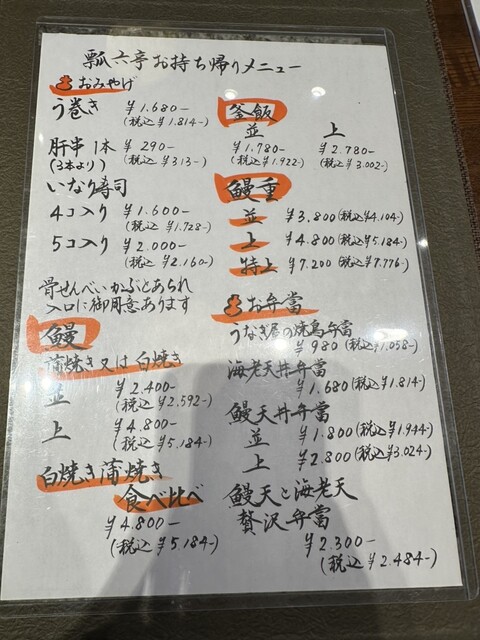 瓢六亭お持ち帰りメニュー
おみやげ
う巻き ¥1.680-
(税込 ¥1.814-)
肝串 1本 ¥290-
(3本より) (税込 ¥313-)
いなり寿司
4コ入り ¥1.600-
(税込 ¥1.728-)
5コ入り ¥2.000-
(税込 ¥2.160-)
骨せんべい・かぶとあられ
入口に御用意あります
鰻
蒲焼き又は白焼き
並 ¥2.400-
(税込 ¥2.592-)
上 ¥4.800-
(税込 ¥5.184-)
白焼き蒲焼き
食べ比べ
¥4.800-
(税込 ¥5.184-)
釜飯
並 上
¥1.780- ¥2.780-
(税込 ¥1.922-) (税込 ¥3.002-)
鰻重
並 ¥3,800(税込¥4.104-)
上 ¥4.800(税込¥5.184-)
特上 ¥7.200(税込¥7.776-)
お弁當
うなぎ屋の焼鳥弁當
¥980(税込¥1.058-)
海老天丼弁當
¥1.680(税込¥1.814-)
鰻天丼弁當
並 ¥1.800(税込¥1.944-)
上 ¥2.800(税込¥3.024-)
鰻天と海老天
贅沢弁當
¥2.300-
(税込 ¥2.484-)